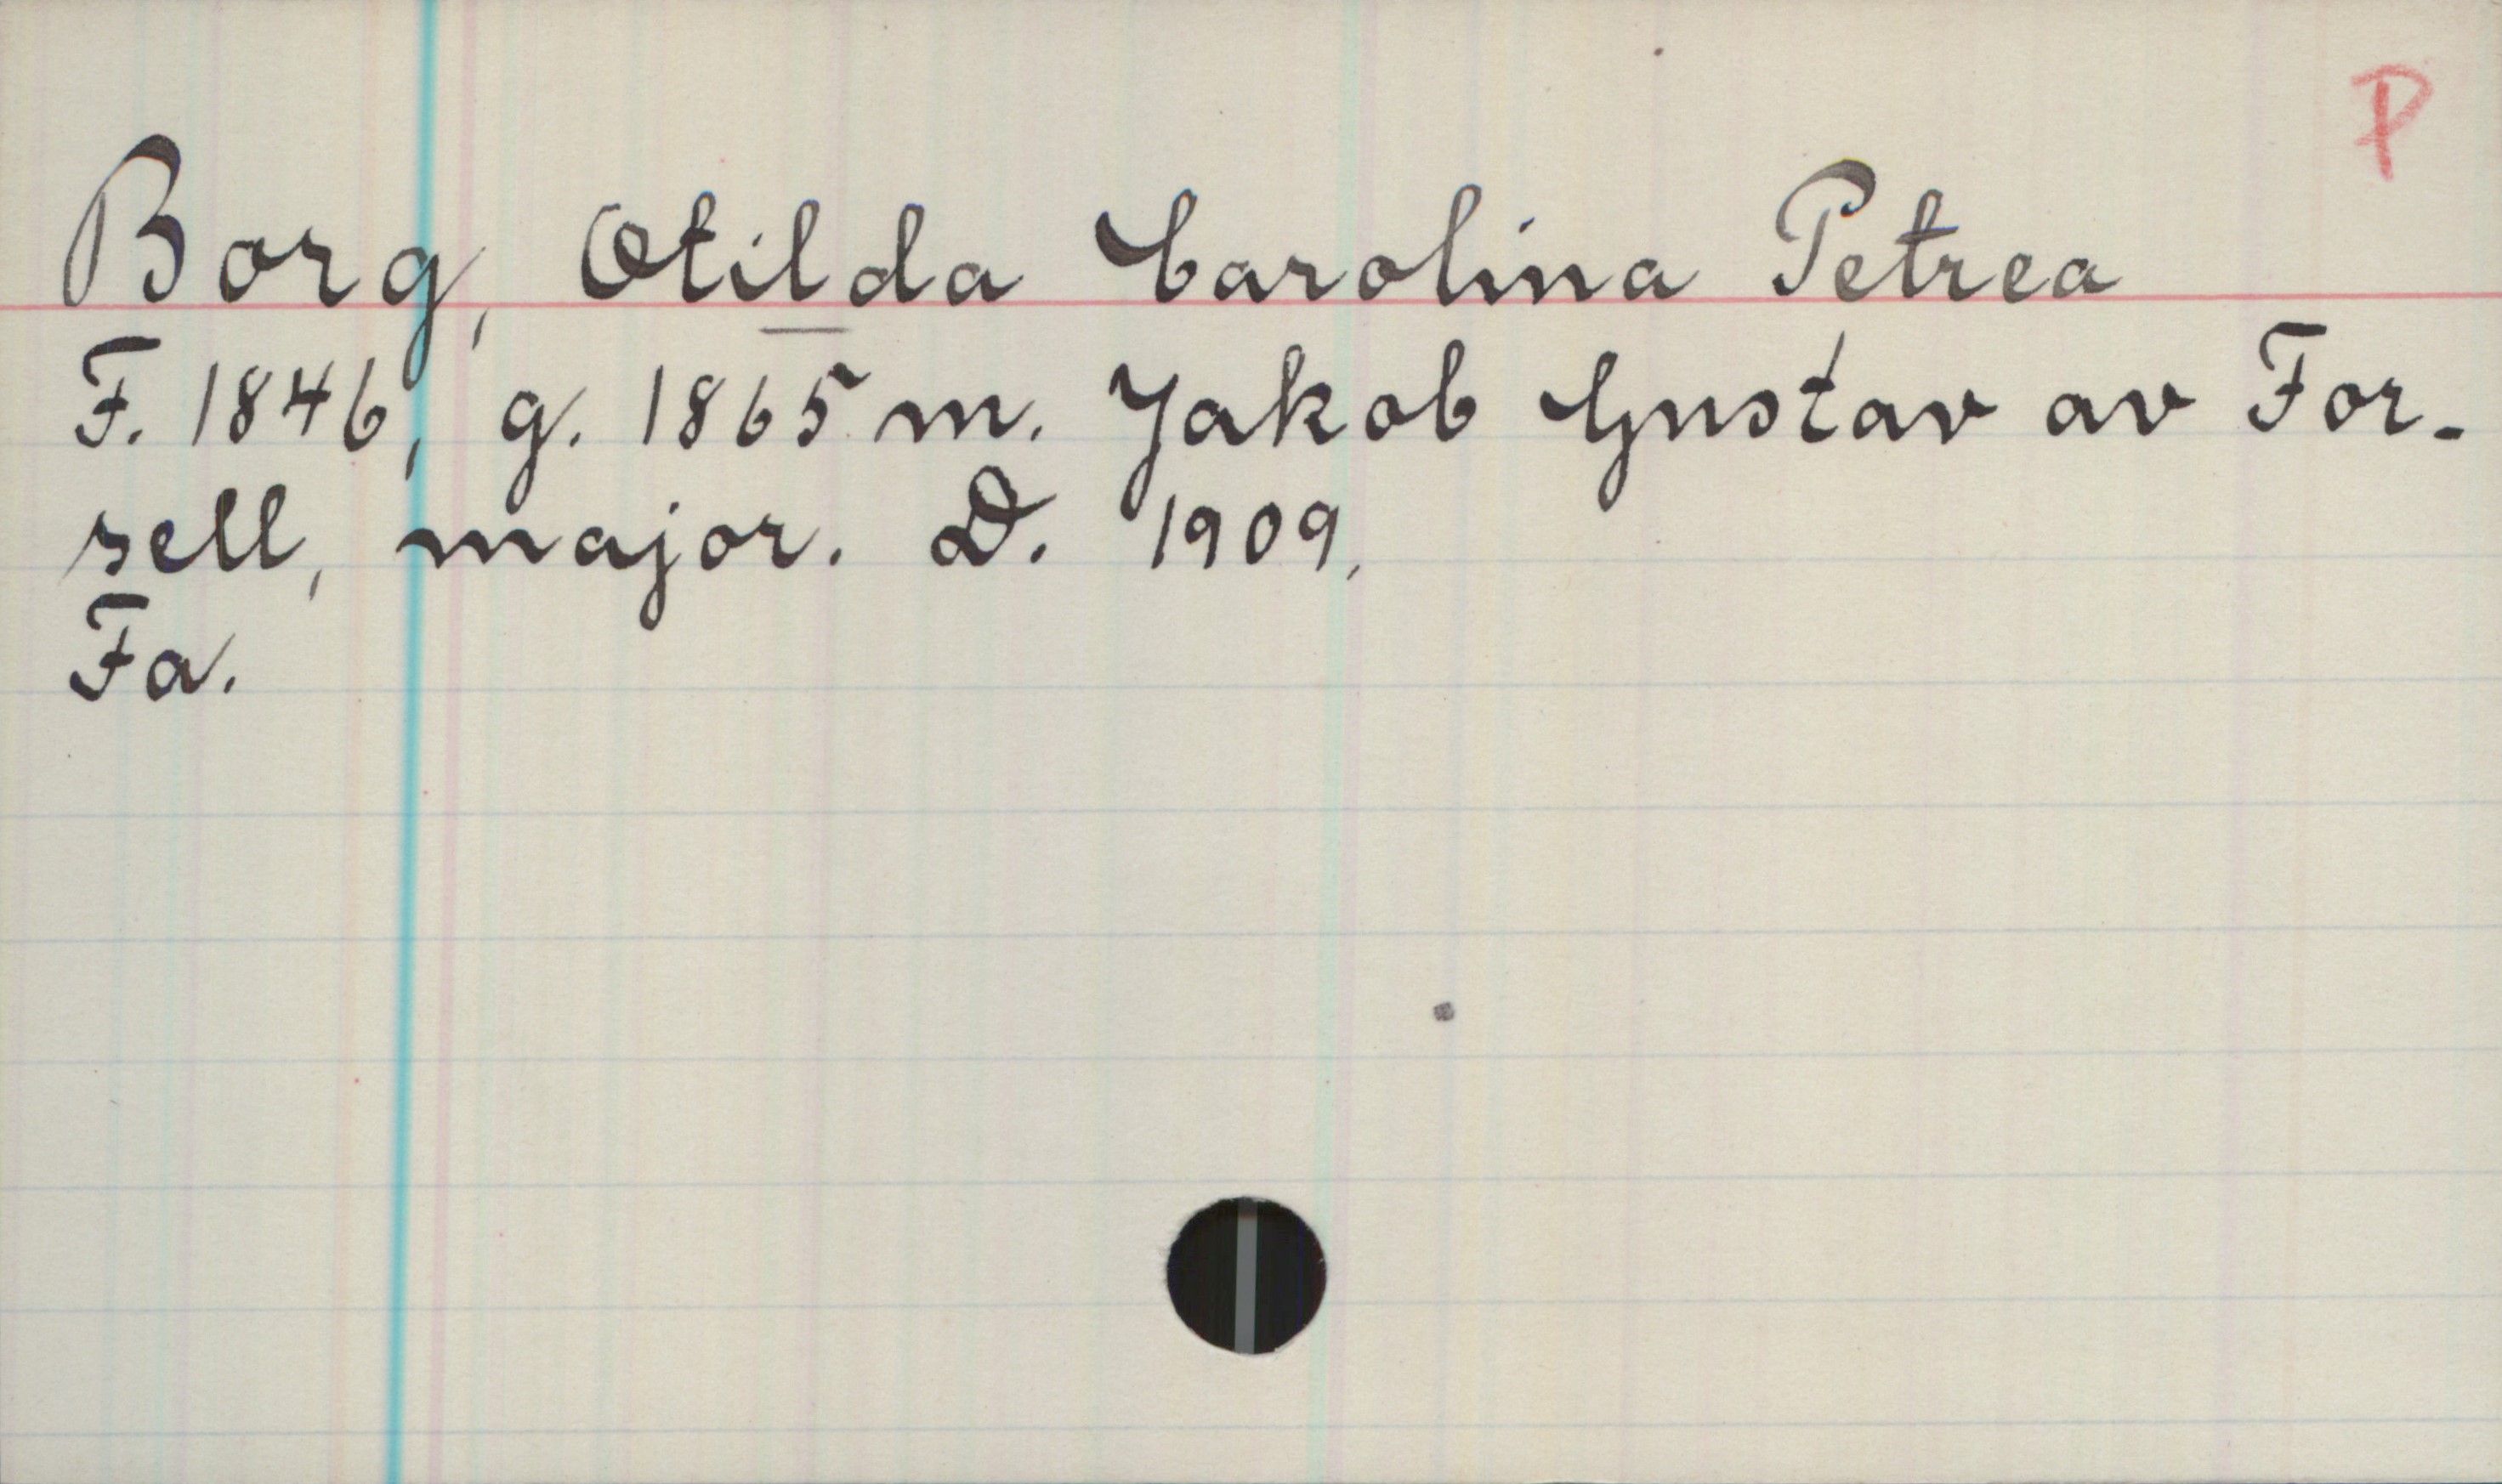 P
Borg, Otilda Carolina Petrea
F. 1846, g. 1865 m. Jakob Gustav av For-
sell, major. D. 1909.
Fa.